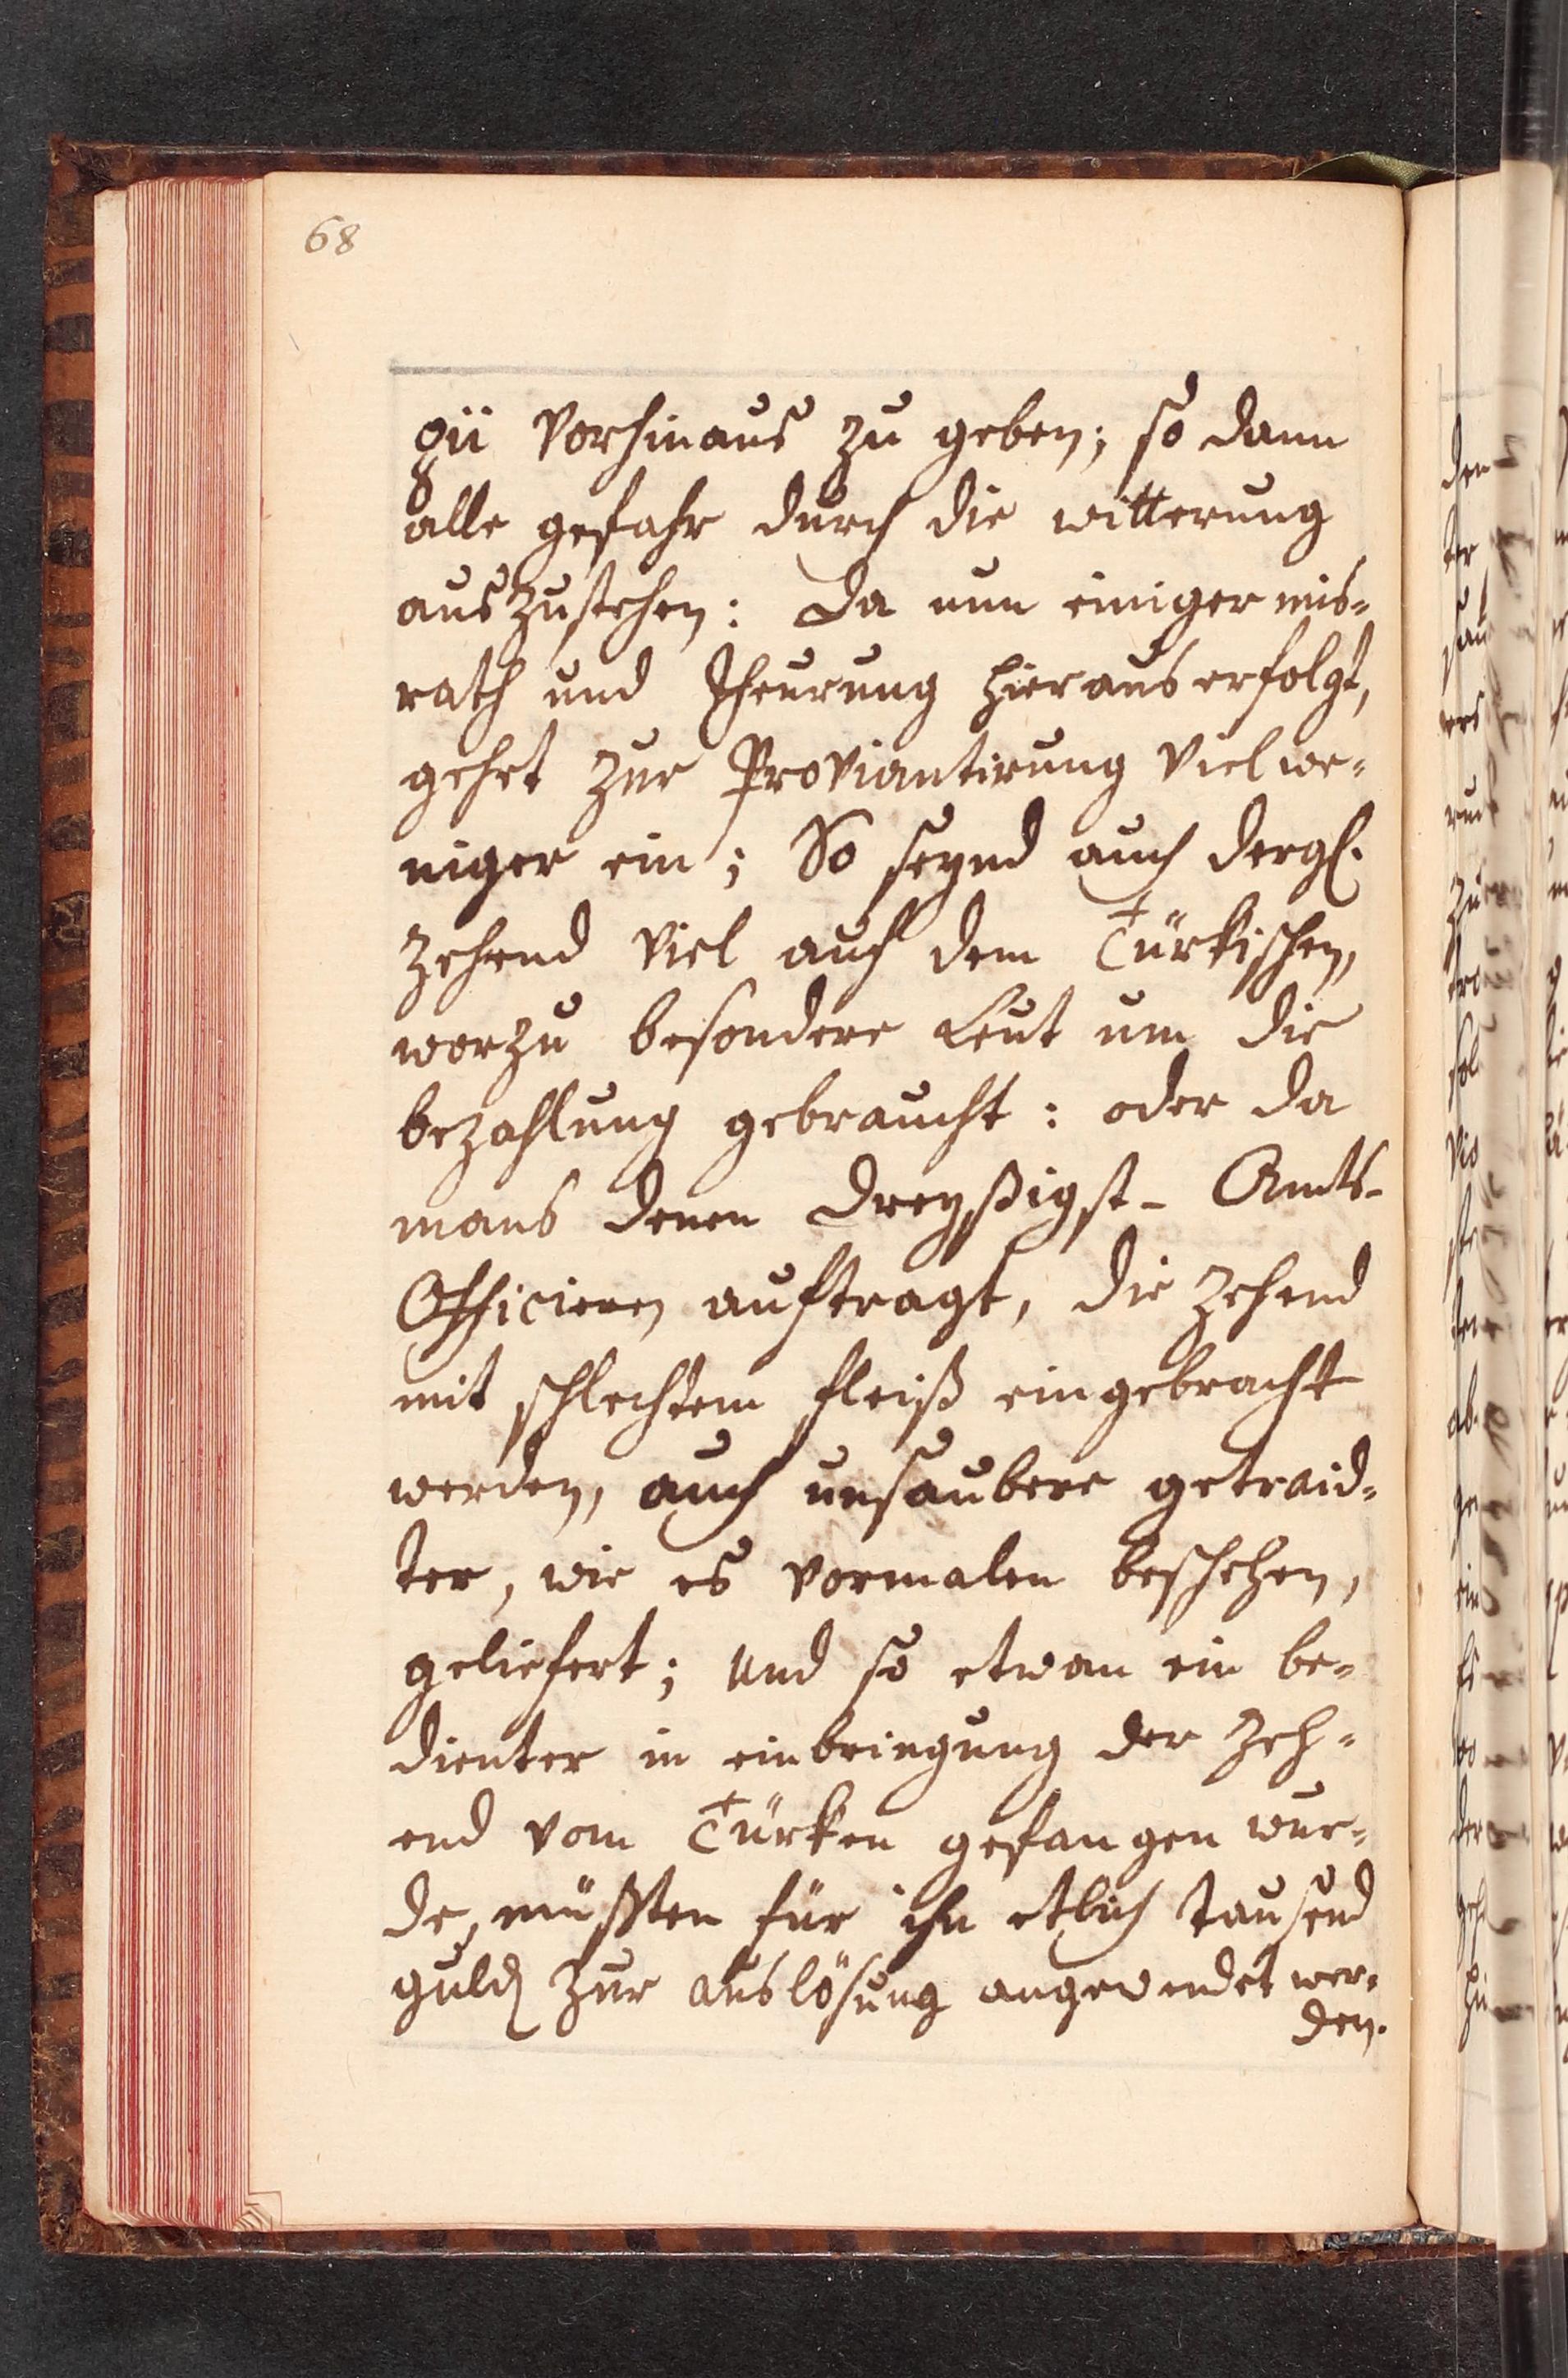 68
gii vorhinaus zu geben; so dann
alle gefahr durch die witterung
auszustehen: Da nun einiger mis=
rath und theurung hieraus erfolgt,
gehet zur Proviantirung viel we=
niger ein; So seynd auch dergl.
zehend viel auf dem Türkischen,
worzu besondere leut um die
bezahlung gebraucht: oder da
mans denen Dreyßigst- Amts-
Officiren auftragt, die zehend
mit schlechtem fleiß eingebracht
werden, auch unsaubere getraid=
ter, wie es vormalen beschehen,
geliefert; und so etwan ein be=
dienter in einbringung der Zeh=
end vom Türken gefangen wur=
de, müßten für ihn etlich tausend
guld zur auslösung angewendet wer=
den.